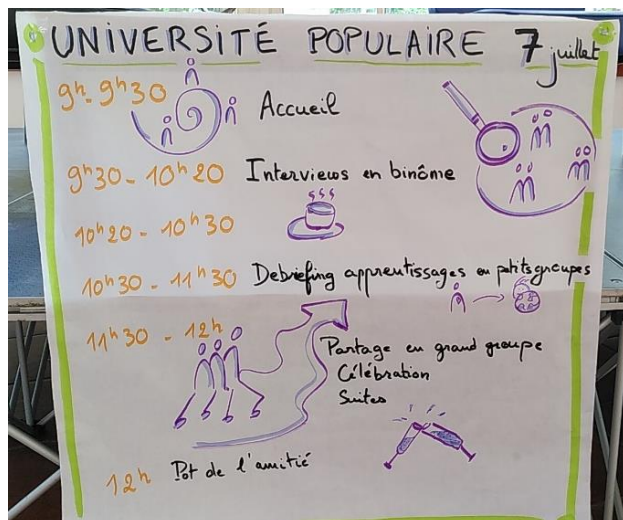 UNIVERSITÉ POPULAIRE 7 juillet
9h - 9h30 Accueil
9h30 - 10h20 Interviews en binôme
10h20 - 10h30
10h30 - 11h30 Debriefing apprentissages en petits groupes
11h30 - 12h
Partage en grand groupe
Célébration
Suites
12h Pot de l'amitié